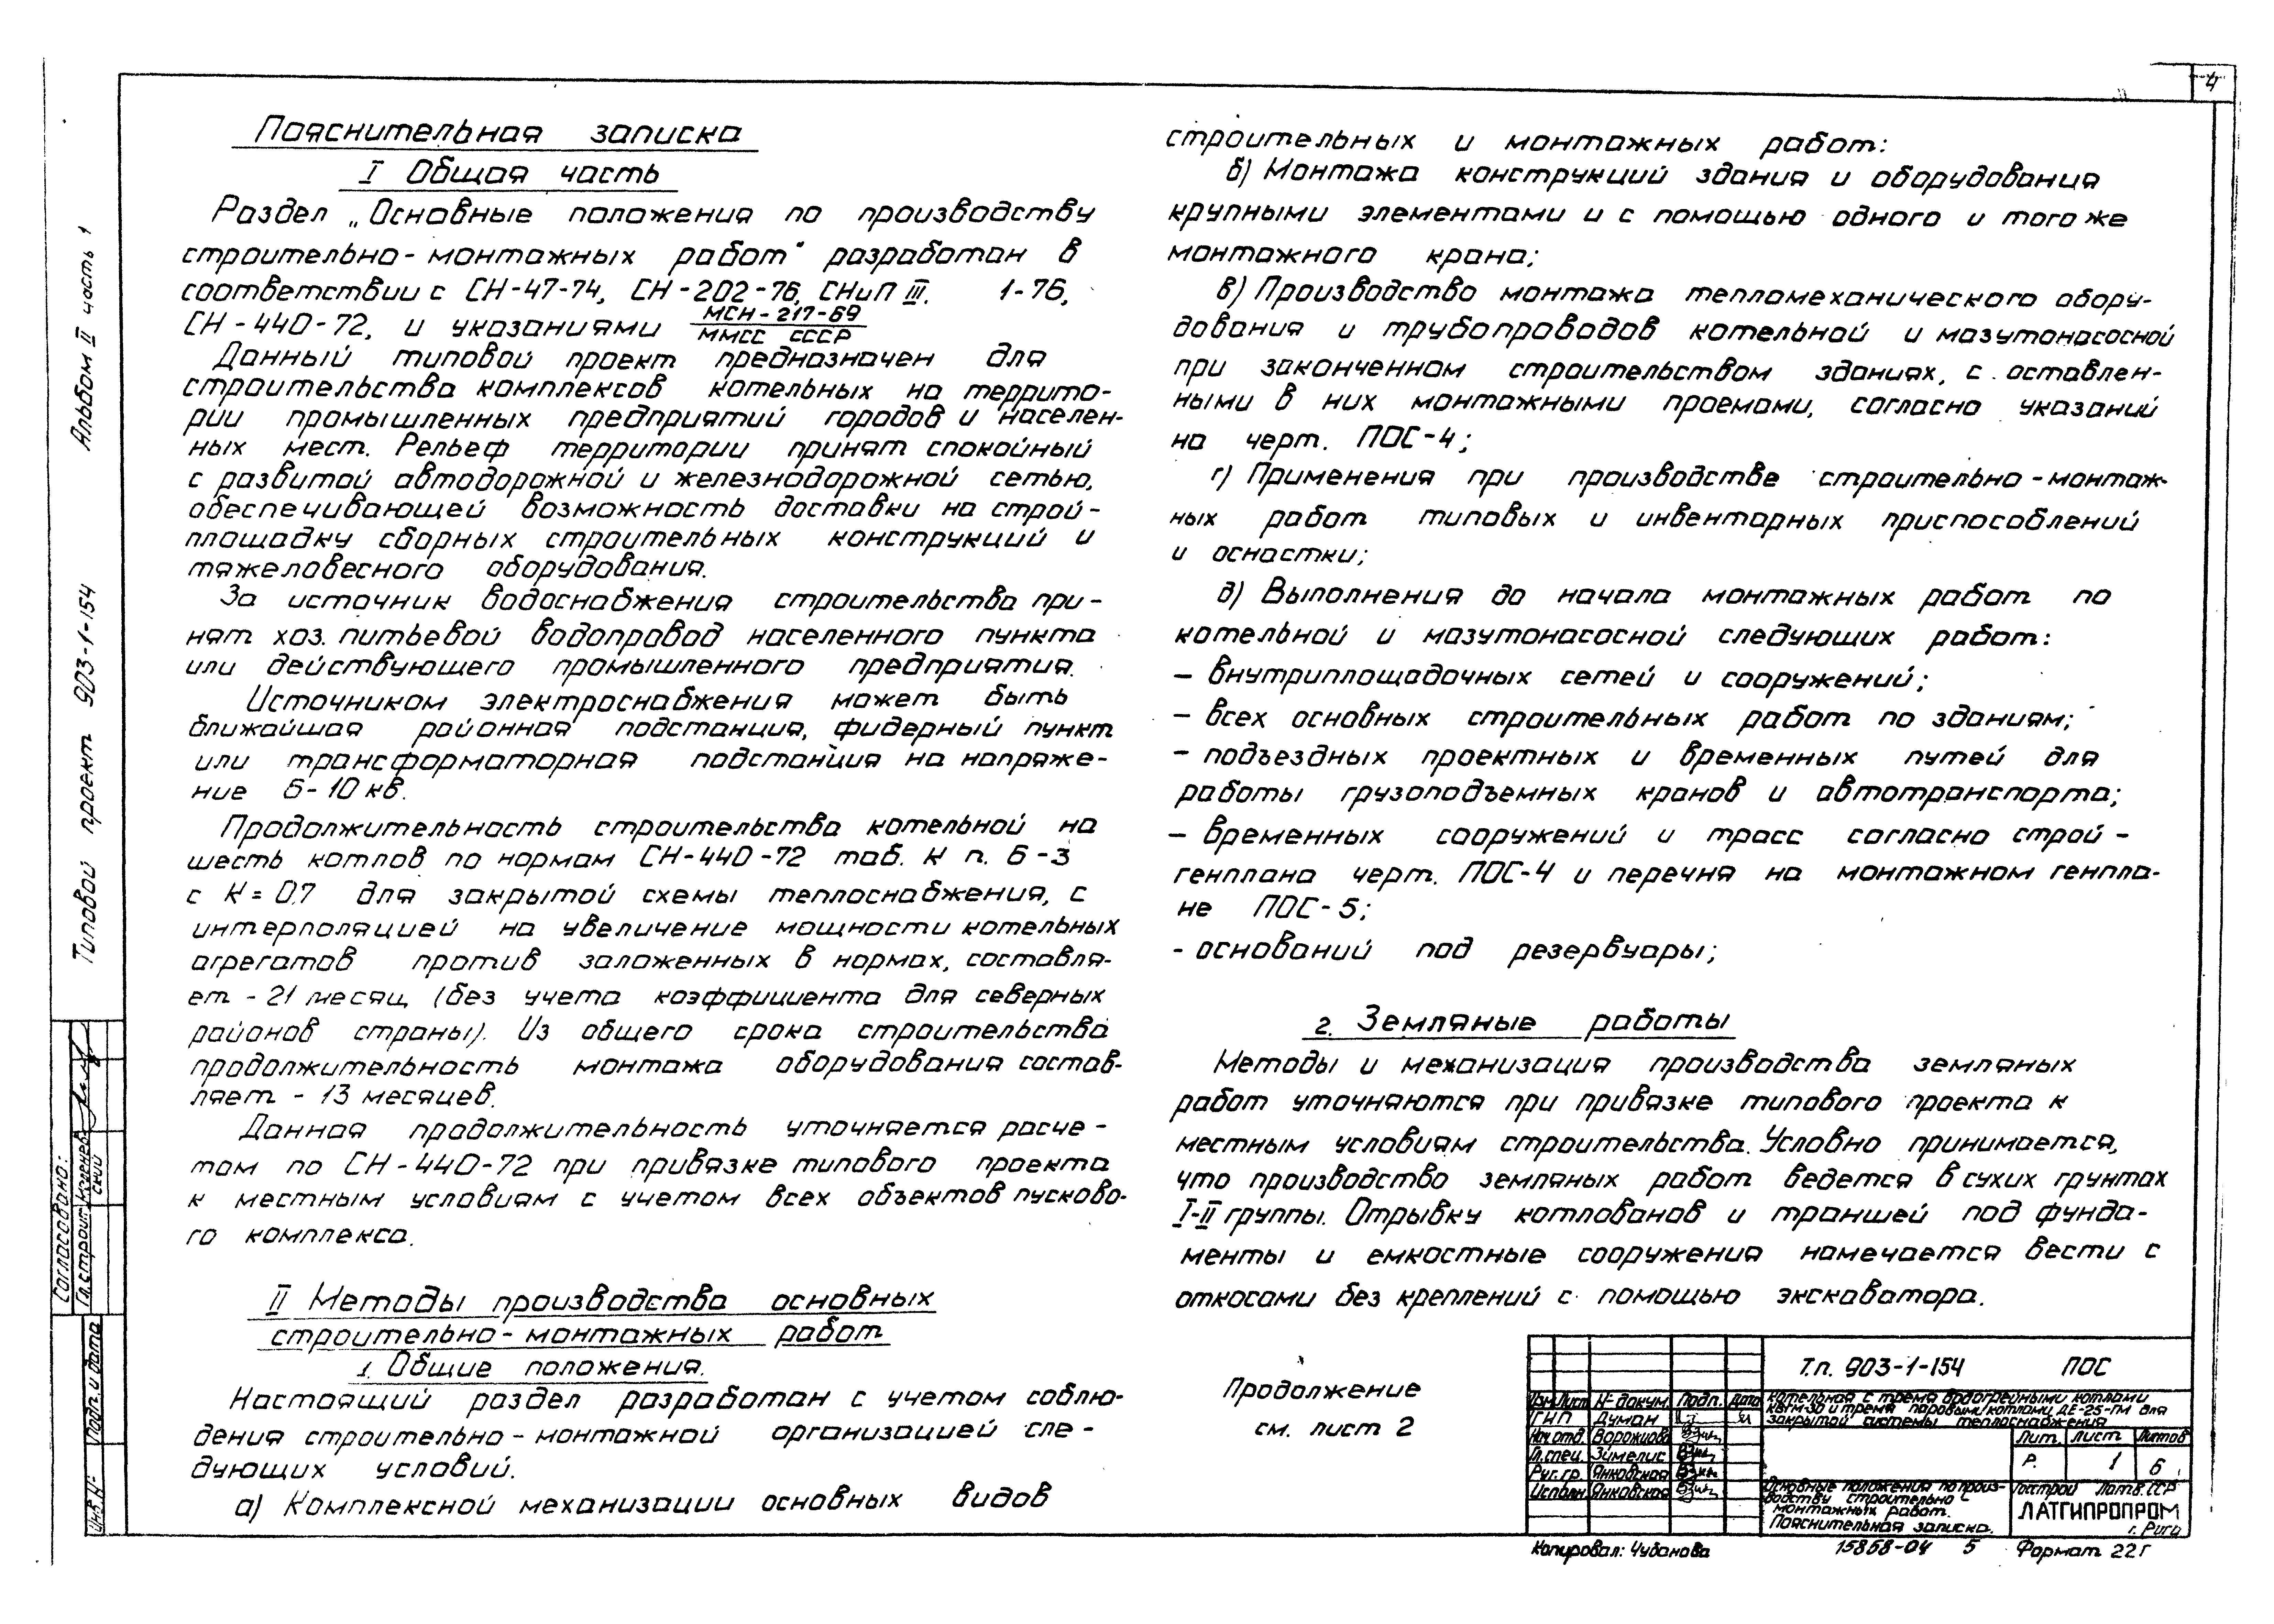 4
Пояснительная записка
I Общая часть
Раздел „Основные положения по производству
строительно-монтажных работ" разработан в
соответствии с СН-47-74, СН-202-76, СНиП III. 1-76,
СН-440-72, и указаниями МСН-217-69
ММСС СССР
Данный типовой проект предназначен для
строительства комплексов котельных на террито-
рии промышленных предприятий городов и населен-
ных мест. Рельеф территории принят спокойный
с развитой автодорожной и железнодорожной сетью,
обеспечивающей возможность доставки на строй-
площадку сборных строительных конструкций и
тяжеловесного оборудования.
За источник водоснабжения строительства при-
нят хоз. питьевой водопровод населенного пункта
или действующего промышленного предприятия.
Источником электроснабжения может быть
ближайшая районная подстанция, фидерный пункт
или трансформаторная подстанция на напряже-
ние 6-10 кв.
Продолжительность строительства котельной на
шесть котлов по нормам СН-440-72 таб. К п. 6-3
с К=0,7 для закрытой схемы теплоснабжения, с
интерполяцией на увеличение мощности котельных
агрегатов против заложенных в нормах, составля-
ет - 21 месяц (без учета коэффициента для северных
районов страны). Из общего срока строительства
продолжительность монтажа оборудования состав-
ляет - 13 месяцев.
Данная продолжительность уточняется расче-
том по СН-440-72 при привязке типового проекта
к местным условиям с учетом всех объектов пусково-
го комплекса.
II Методы производства основных
строительно-монтажных работ
1. Общие положения.
Настоящий раздел разработан с учетом соблю-
дения строительно-монтажной организацией сле-
дующих условий.
а) Комплексной механизации основных видов
строительных и монтажных работ:
б) Монтажа конструкций здания и оборудования
крупными элементами и с помощью одного и того же
монтажного крана;
в) Производство монтажа тепломеханического обору-
дования и трубопроводов котельной и мазутонасосной
при законченном строительством зданиях, с оставлен-
ными в них монтажными проемами, согласно указаний
на черт. ПОС-4;
г) Применения при производстве строительно-монтаж-
ных работ типовых и инвентарных приспособлений
и оснастки;
д) Выполнения до начала монтажных работ по
котельной и мазутонасосной следующих работ:
- внутриплощадочных сетей и сооружений;
- всех основных строительных работ по зданиям;
- подъездных проектных и временных путей для
работы грузоподъемных кранов и автотранспорта;
- временных сооружений и трасс согласно строй-
генплана черт. ПОС-4 и перечня на монтажном генпла-
не ПОС-5;
- оснований под резервуары;
2. Земляные работы
Методы и механизация производства земляных
работ уточняются при привязке типового проекта к
местным условиям строительства. Условно принимается,
что производство земляных работ ведется в сухих грунтах
I-II группы. Отрывку котлованов и траншей под фунда-
менты и емкостные сооружения намечается вести с
откосами без креплений с помощью экскаватора.
Продолжение
см. лист 2
Т.п. 903-1-154 ПОС
Изм Лист № докум. Подп. Дата
ГИП Думан
Нач отд. Ворожцова
Гл. спец. Зимелис
Рук. гр. Янковская
Исполн. Янковская
котельная с тремя водогрейными котлами
КВГМ-30 и тремя паровыми котлами ДЕ-25-ГМ для
закрытой системы теплоснабжения
Лит. Лист Листов
Р. 1 6
Основные положения по произ-
водству строительно-
монтажных работ.
Пояснительная записка.
Госстрой Латв. ССР
ЛАТГИПРОПРОМ
г. Рига
Копировал: Чубанова
15868-04 5 Формат 22Г
Альбом II часть 1
Типовой проект 903-1-154
Согласовано:
Гл. строит.
Инв. №
Подп. и дата